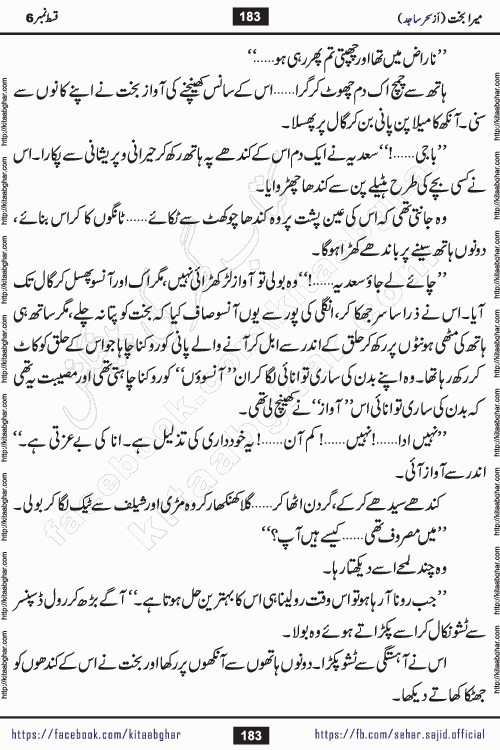 میرا بخت (از سحر ساجد) 183 قسط نمبر 6
’’ناراض میں تھا اور چھپتی تم پھر رہی ہو......‘‘
ہاتھ سے چمچ اک دم چھوٹ کر گرا...... اس کے سانس کھینچنے کی آواز بخت نے اپنے کانوں سے
سنی۔ آنکھ کا میلا پن پانی بن کر گال پر پھسلا۔
’’باجی......!‘‘ سعدیہ نے ایک دم اس کے کندھے پہ ہاتھ رکھ کر حیرانی و پریشانی سے پکارا۔ اس
نے کسی بچے کی طرح ہٹیلے پن سے کندھا چھڑوایا۔
وہ جانتی تھی کہ اس کی عین پشت پر وہ کندھا چوکھٹ سے ٹکائے...... ٹانگوں کا کراس بنائے،
دونوں ہاتھ سینے پر باندھے کھڑا ہوگا۔
’’چائے لے جاؤ سعدیہ......!‘‘ وہ بولی تو آواز لڑکھڑائی نہیں، مگر اک اور آنسو پھسل کر گال تک
آیا۔ اس نے ذرا سا سر جھکا کر، انگلی کی پور سے یوں آنسو صاف کیا کہ بخت کو پتا نہ چلے، مگر ساتھ ہی
ہاتھ کی مٹھی ہونٹوں پر رکھ کر حلق کے اندر سے ابل کر آنے والے پانی کو روکنا چاہا جو اس کے حلق کو کاٹ
کر رکھ رہا تھا۔ وہ اپنے بدن کی ساری توانائی لگا کر ان ’’آنسوؤں‘‘ کو روکنا چاہتی تھی اور مصیبت یہ تھی
کہ بدن کی ساری توانائی اس ’’آواز‘‘ نے کھینچ لی تھی۔
’’نہیں ادا......! نہیں......! کم آن......! یہ خودداری کی تذلیل ہے۔ انا کی بے عزتی ہے۔‘‘
اندر سے آواز آئی۔
کندھے سیدھے کر کے، گردن اٹھا کر...... گلا کھنکھار کر وہ مڑی اور شیلف سے ٹیک لگا کر بولی۔
’’میں مصروف تھی...... کیسے ہیں آپ؟‘‘
وہ چند لمحے اسے دیکھتا رہا۔
’’جب رونا آرہا ہو تو اس وقت رو لینا ہی اس کا بہترین حل ہوتا ہے۔‘‘ آگے بڑھ کر رول ڈسپنسر
سے ٹشو نکال کر اسے پکڑاتے ہوئے وہ بولا۔
اس نے آہستگی سے ٹشو پکڑا۔ دونوں ہاتھوں سے آنکھوں پر رکھا اور بخت نے اس کے کندھوں کو
جھٹکا کھاتے دیکھا۔
https://facebook.com/kitaabghar 183 https://fb.com/sehar.sajid.official
http://kitaabghar.com